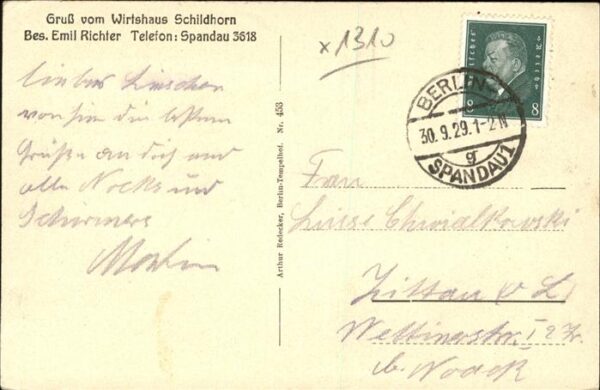 Gruß vom Wirtshaus Schildhorn
Bes. Emil Richter Telefon: Spandau 3618
Liebes Lieschen
von hier die besten
Grüße an dich und
alle Nocks und
Schirmers
Martin
Arthur Redecker, Berlin-Tempelhof. Nr. 453
x 1310
8 8
BERLIN
30.9.29.1-2N
gr
SPANDAU 1
Frau
Chwialkowski
Zittau
b. Noack